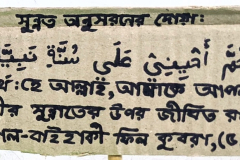 সুন্নত অনুসরনের দোয়া:
أَحْيِنِيْ عَلَى سُنَّةِ
হে আল্লাহ, আমাকে আপ
সুন্নাতের উপর জীবিত রা
বাইহাকী ফিল কুবরা, (৫